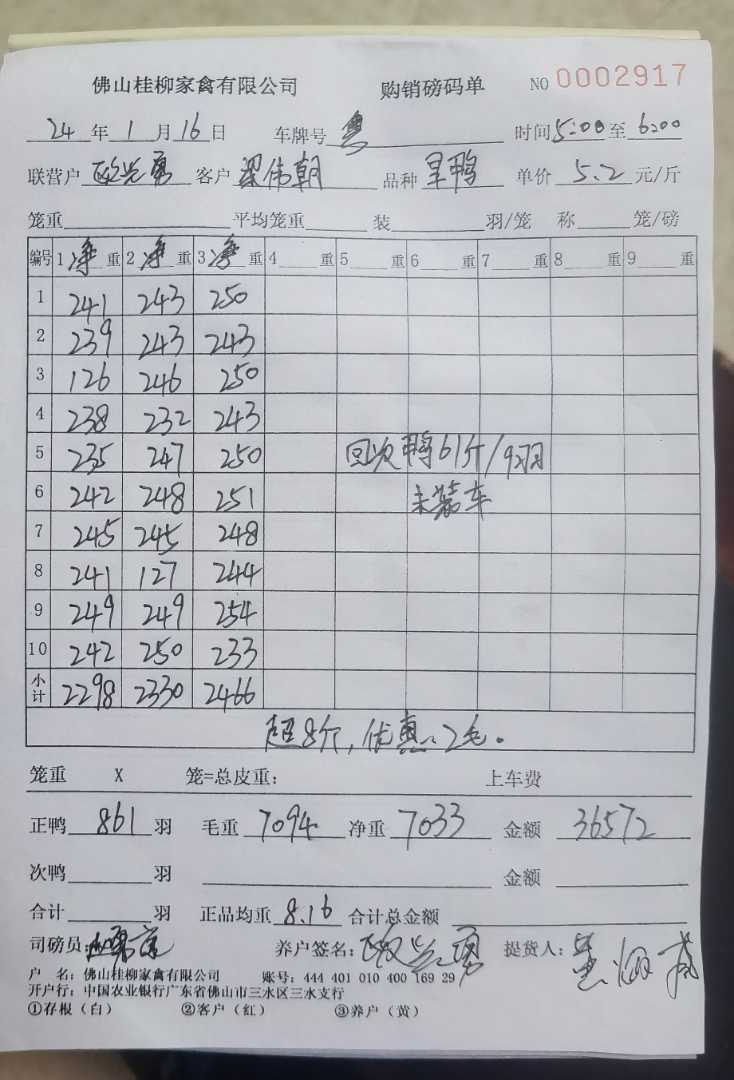 佛山桂柳家禽有限公司 购销磅码单 NO 0002917
24年1月16日 车牌号 粤 时间5:00至6:00
联营户 欧兴勇 客户 梁伟朝 品种 旱鸭 单价 5.2 元/斤
笼重 平均笼重 装 羽/笼 称 笼/磅
编号 1净重 2净重 3净重 4重 5重 6重 7重 8重 9重
1 241 243 250
2 239 243 243
3 126 246 250
4 238 232 243
5 235 247 250 回次鸭61斤/9羽
6 242 248 251 未装车
7 245 245 248
8 241 127 244
9 249 249 254
10 242 250 233
小计 2298 2330 2466
超8斤,优惠2毛。
笼重 X 笼=总皮重: 上车费
正鸭 861 羽 毛重 7094 净重 7033 金额 36572
次鸭 羽 金额
合计 羽 正品均重 8.16 合计总金额
司磅员: 养户签名: 欧兴勇 提货人:
户 名: 佛山桂柳家禽有限公司 账号: 444 401 010 400 169 29
开户行: 中国农业银行广东省佛山市三水区三水支行
①存根(白) ②客户(红) ③养户(黄)